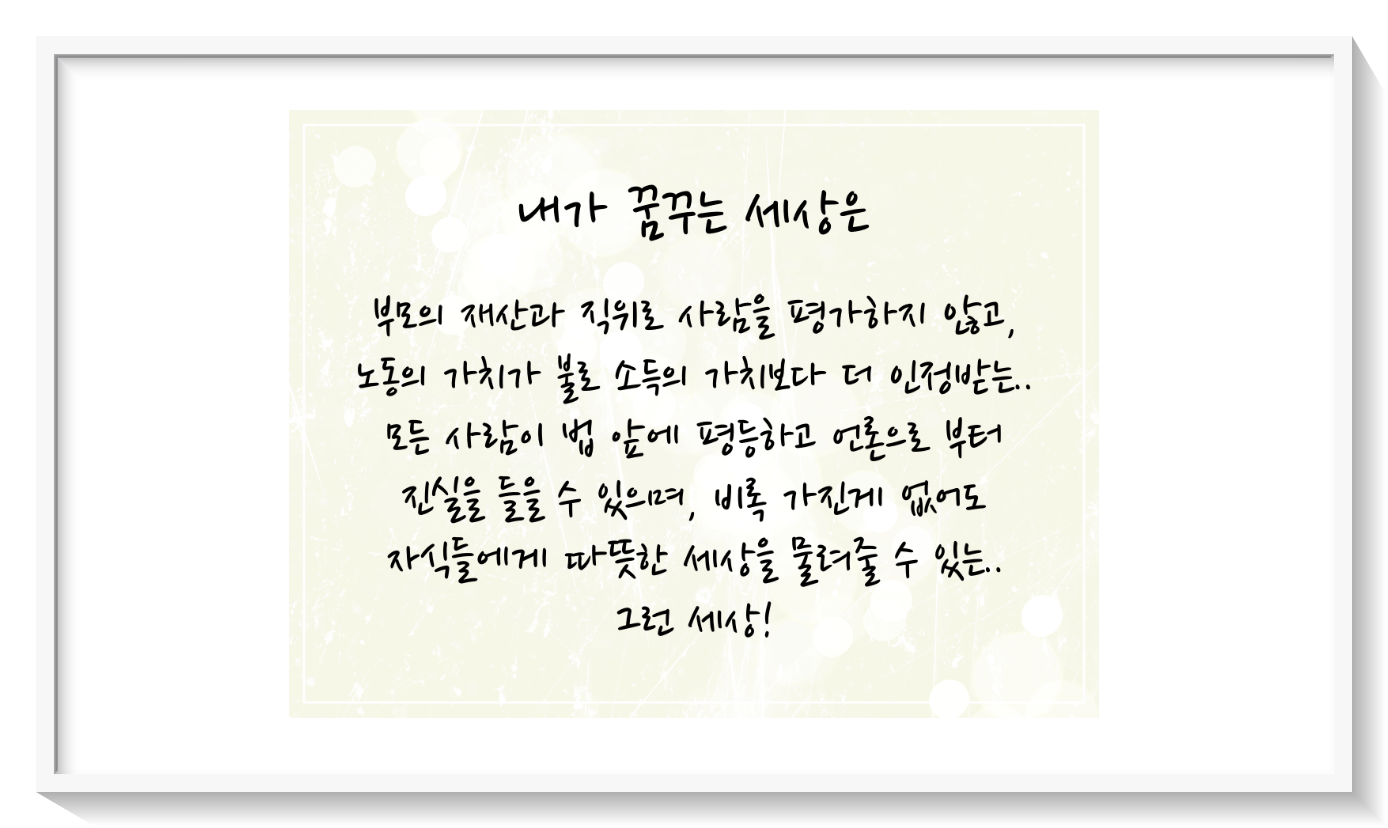 내가 꿈꾸는 세상은
부모의 재산과 직위로 사람을 평가하지 않고,
노동의 가치가 불로 소득의 가치보다 더 인정받는..
모든 사람이 법 앞에 평등하고 언론으로 부터
진실을 들을 수 있으며, 비록 가진게 없어도
자식들에게 따뜻한 세상을 물려줄 수 있는..
그런 세상!